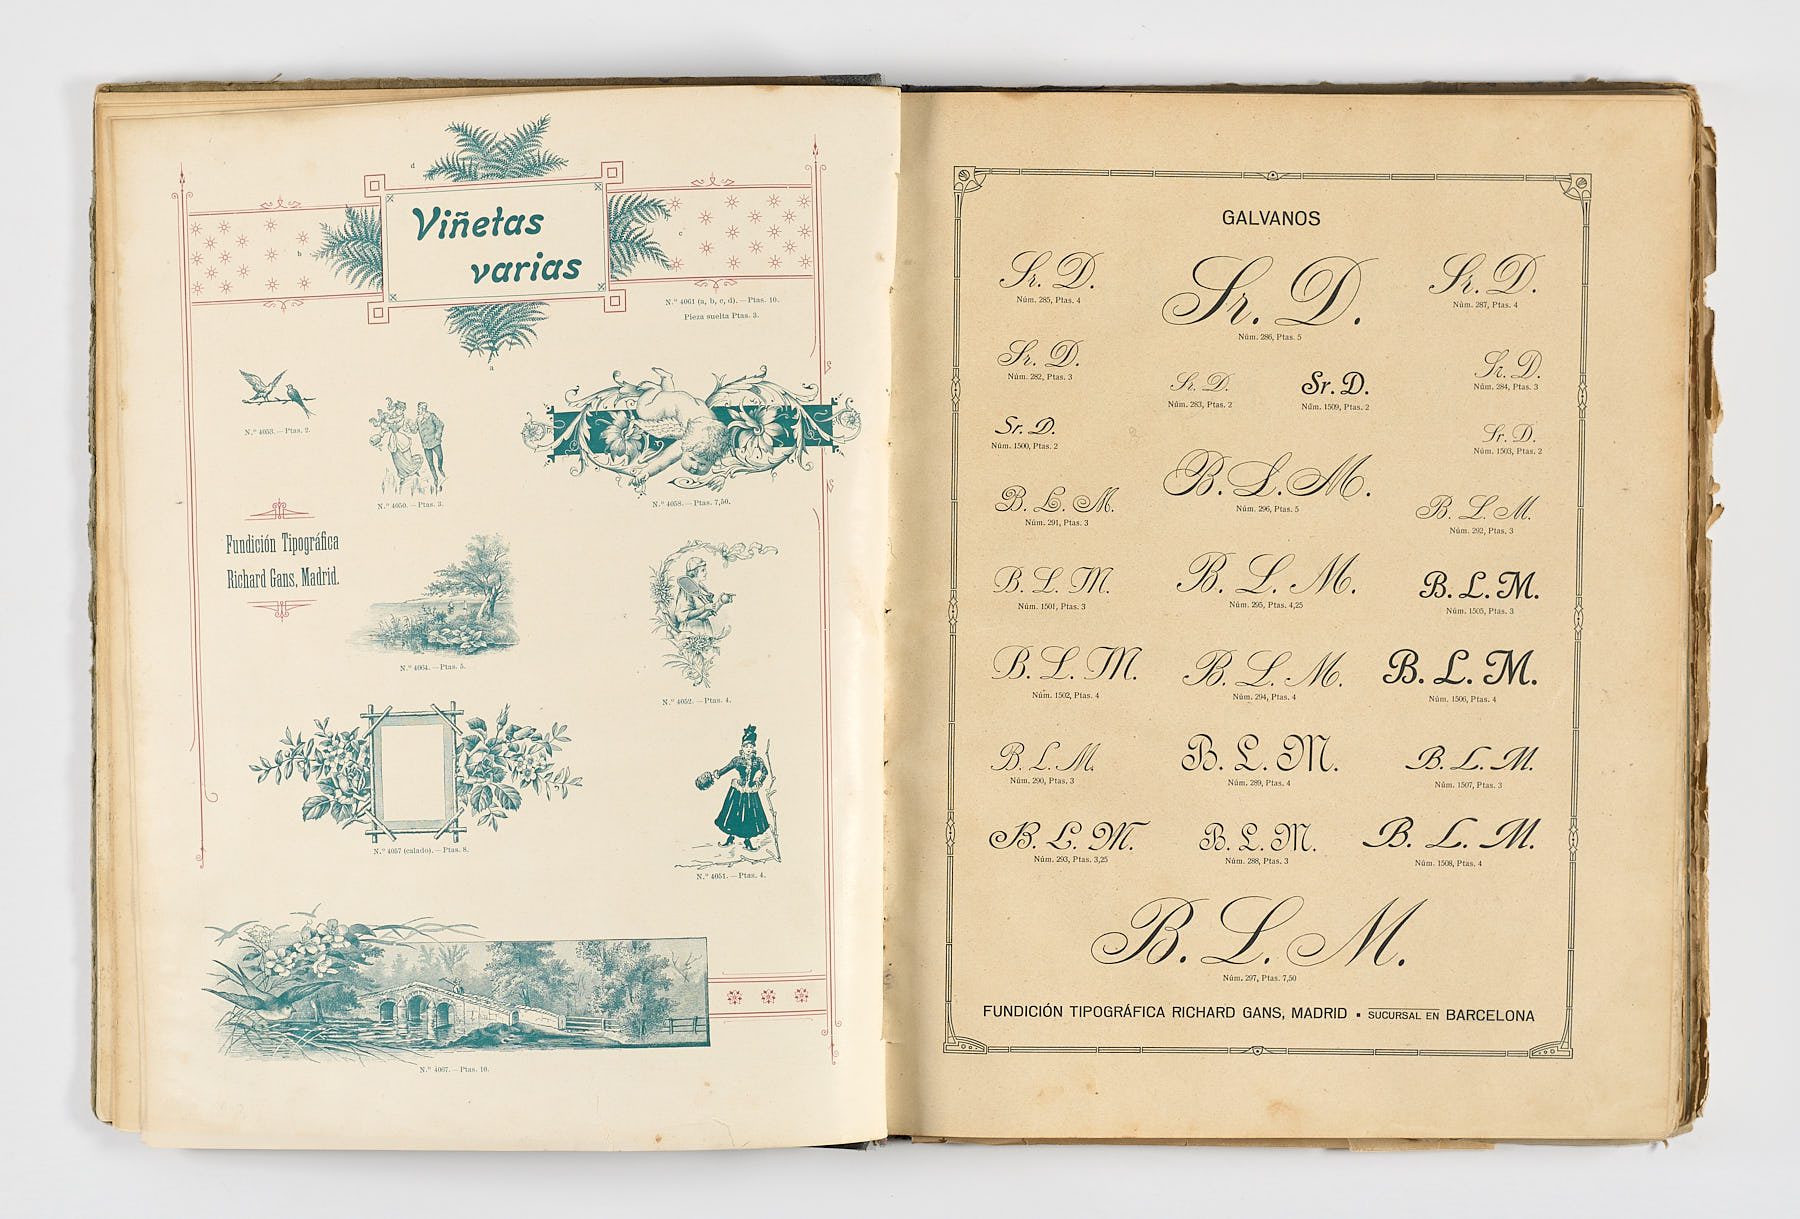 d
Viñetas
varias
b
c
N.º 4061 (a, b, c, d). — Ptas. 10.
Pieza suelta Ptas. 3.
a
N.º 4053. — Ptas. 2.
N.º 4050. — Ptas. 3.
N.º 4058. — Ptas. 7,50.
Fundición Tipográfica
Richard Gans, Madrid.
N.º 4064. — Ptas. 5.
N.º 4052. — Ptas. 4.
N.º 4057 (calado). — Ptas. 8.
N.º 4051. — Ptas. 4.
N.º 4067. — Ptas. 10.
GALVANOS
Sr. D.
Núm. 285, Ptas. 4
Sr. D.
Núm. 286, Ptas. 5
Sr. D.
Núm. 287, Ptas. 4
Sr. D.
Núm. 282, Ptas. 3
Sr. D.
Núm. 283, Ptas. 2
Sr. D.
Núm. 1509, Ptas. 2
Sr. D.
Núm. 284, Ptas. 3
Sr. D.
Núm. 1500, Ptas. 2
Sr. D.
Núm. 1503, Ptas. 2
B. L. M.
Núm. 291, Ptas. 3
B. L. M.
Núm. 296, Ptas. 5
B. L. M.
Núm. 292, Ptas. 3
B. L. M.
Núm. 1501, Ptas. 3
B. L. M.
Núm. 295, Ptas. 4,25
B. L. M.
Núm. 1505, Ptas. 3
B. L. M.
Núm. 1502, Ptas. 4
B. L. M.
Núm. 294, Ptas. 4
B. L. M.
Núm. 1506, Ptas. 4
B. L. M.
Núm. 290, Ptas. 3
B. L. M.
Núm. 289, Ptas. 4
B. L. M.
Núm. 1507, Ptas. 3
B. L. M.
Núm. 293, Ptas. 3,25
B. L. M.
Núm. 288, Ptas. 3
B. L. M.
Núm. 1508, Ptas. 4
B. L. M.
Núm. 297, Ptas. 7,50
FUNDICIÓN TIPOGRÁFICA RICHARD GANS, MADRID ▪ SUCURSAL EN BARCELONA